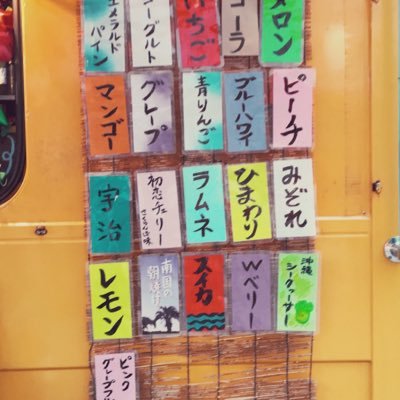 エメラルド
パイン
ヨーグルト
いちご
コーラ
メロン
マンゴー
グレープ
青りんご
ブルーハワイ
ピーチ
宇治
初恋チェリー
さくらんぼ味
ラムネ
ひまわり
みぞれ
レモン
南国の
朝焼け
スイカ
Wベリー
沖縄
シークァーサー
ピンク
グレープフル